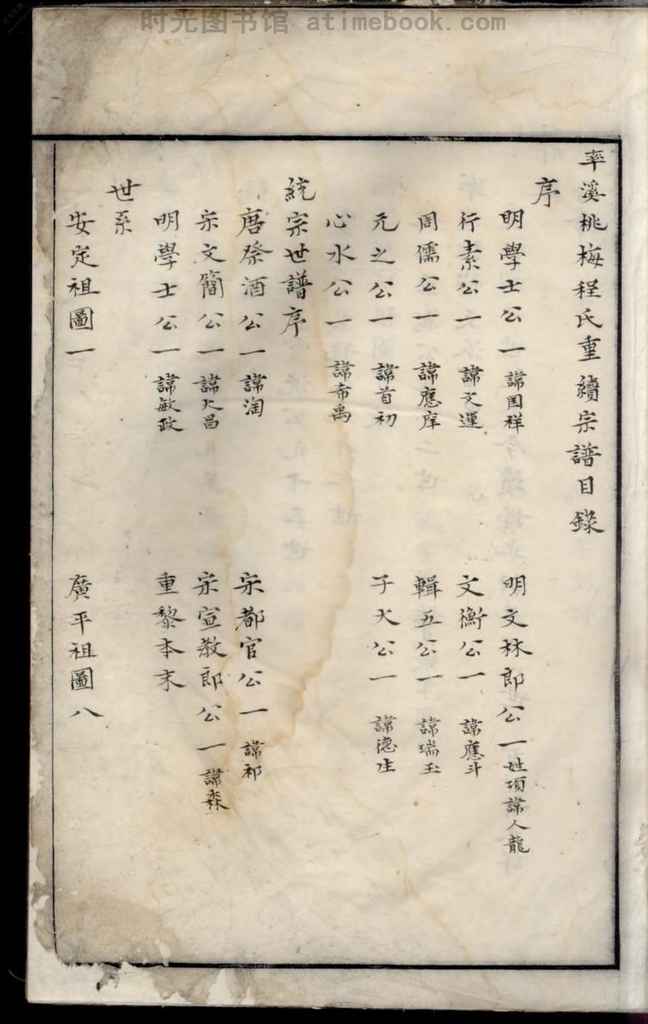 时光图书馆 atimebook.com
率溪桃梅程氏重續宗譜目錄
序
明學士公一 諱国祥 明文林郎公一 姓項諱人龍
行素公一 諱文運 文衡公一 諱應斗
周儒公一 諱應庠 輯五公一 諱瑞玉
元之公一 諱首初 子大公一 諱德生
心水公一 諱希禹
統宗世譜序
唐祭酒公一 諱淘 宋都官公一 諱祁
宋文簡公一 諱大昌 宋宣教郎公一 諱森
明學士公一 諱敏政 重黎本末
世系
安定祖圖一 廣平祖圖八